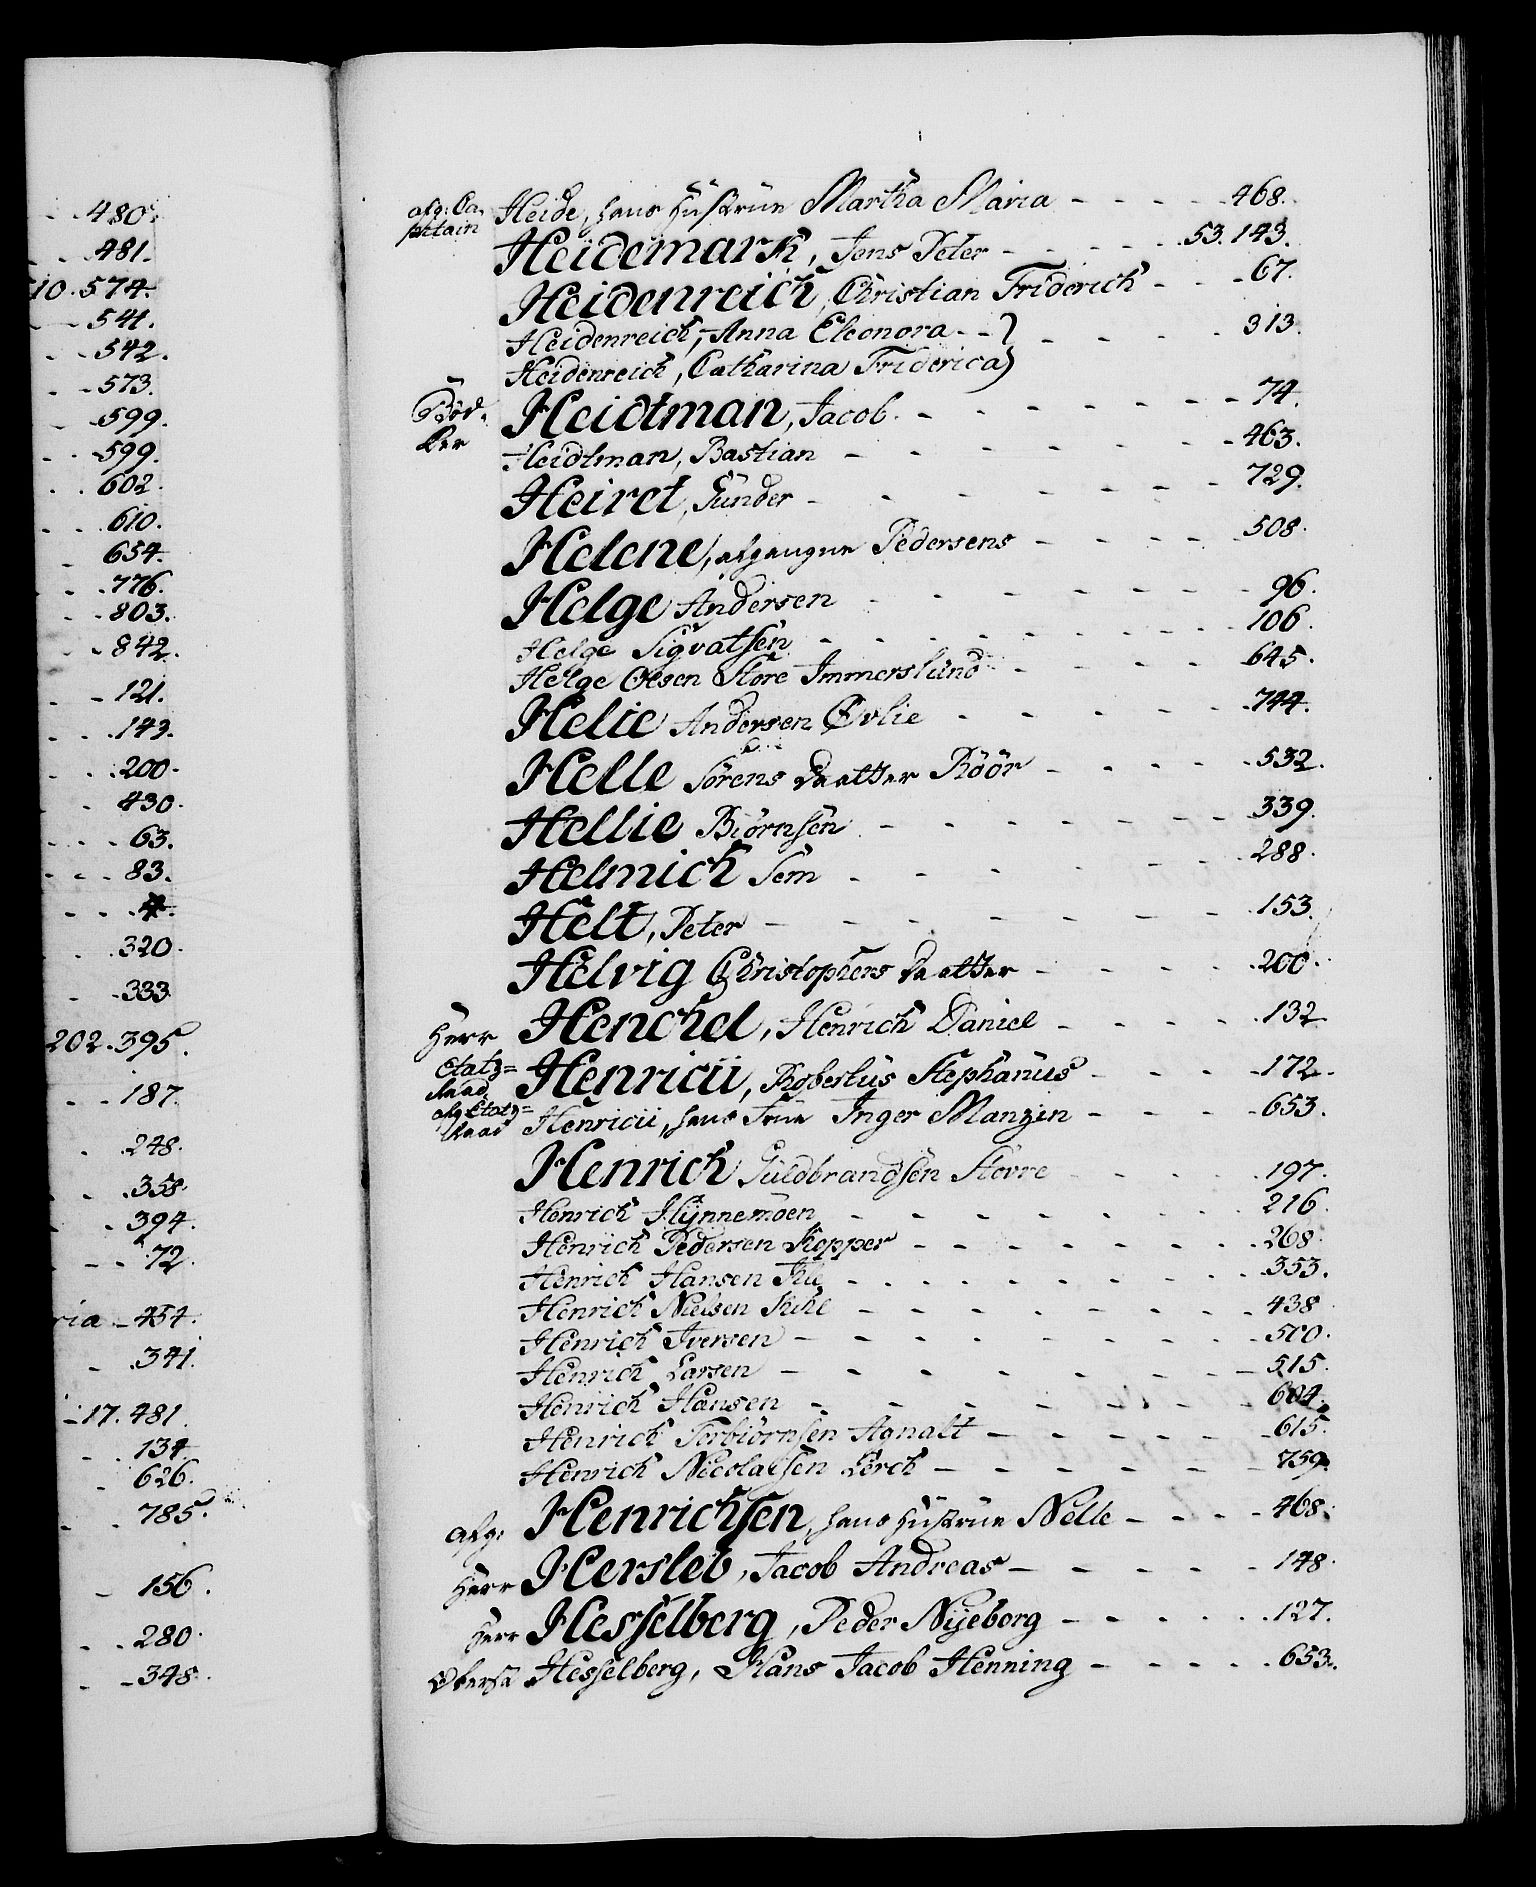 480.
481.
10. 574.
541.
542.
573.
599.
599.
602.
610.
654.
776.
803.
842.
121.
143.
200.
430.
63.
83.
4.
320.
333
202. 395.
187.
248.
358.
394.
72.
ria - 454.
341.
17. 481.
134.
626.
785.
156.
280.
348.
afg: Ca- Heide, hans Hustrue Martha Maria - - - - - 468.
pitain
Heidemark, Jens Peter - - - - 53. 143.
Heidenreich, Christian Friderich - - - 67.
Heidenreich, Anna Eleonora - - } - - - - 313.
Heidenreich, Catharina Friderica }
Bød- Heidtman, Jacob. - - - - - - - 74.
ker
Heidtman, Bastian - - - - - - - 463.
Heiret, Gunder - - - - - - - 729.
Helene, afgangne Pedersens - - - - - 508.
Helge Andersen - - - - - - - 96.
Helge Sigvatsen - - - - - - - 106.
Helge Olsen Store Immerslund - - - - 645.
Helie Andersen Øvlie - - - - - 744.
Helle Sørens Daatter Röör - - - - - 532.
Hellie Biørnsen - - - - - - 339.
Helmich Sem - - - - - - 288.
Helt, Peter - - - - - - - 153.
Helvig Christophers Daatter - - - - - 200.
Herr Henchel, Henrich Daniel - - - - - 132.
Etatz= Henricii, Robertus Stephanus - - - - 172.
Raad.
afg. Etatz= Henricii, hans Frue Inger Manzin - - - - 653.
Raad
Henrich Guldbrandsen Storre - - - - 197.
Henrich Hynnemoen - - - - - - - 216.
Henrich Pedersen Kopper - - - - - - 268.
Henrich Hansen - - - - - - - - 353.
Henrich Nielsen - - - - - - - 438.
Henrich Iversen - - - - - - - 500.
Henrich Larsen - - - - - - - 515.
Henrich Hansen - - - - - - - 604.
Henrich Torbiørnsen Agnalt - - - - - 615.
Henrich Nicolaisen Lerch - - - - - - 759.
afg: Henrichsen, hans Hustrue Nelle - - - - 468.
Herr Hersleb, Jacob Andreas - - - - - 148.
Herr Hesselberg, Peder Nyeborg - - - - - 127.
Oberst Hesselberg, Hans Jacob Henning - - - - - 653.